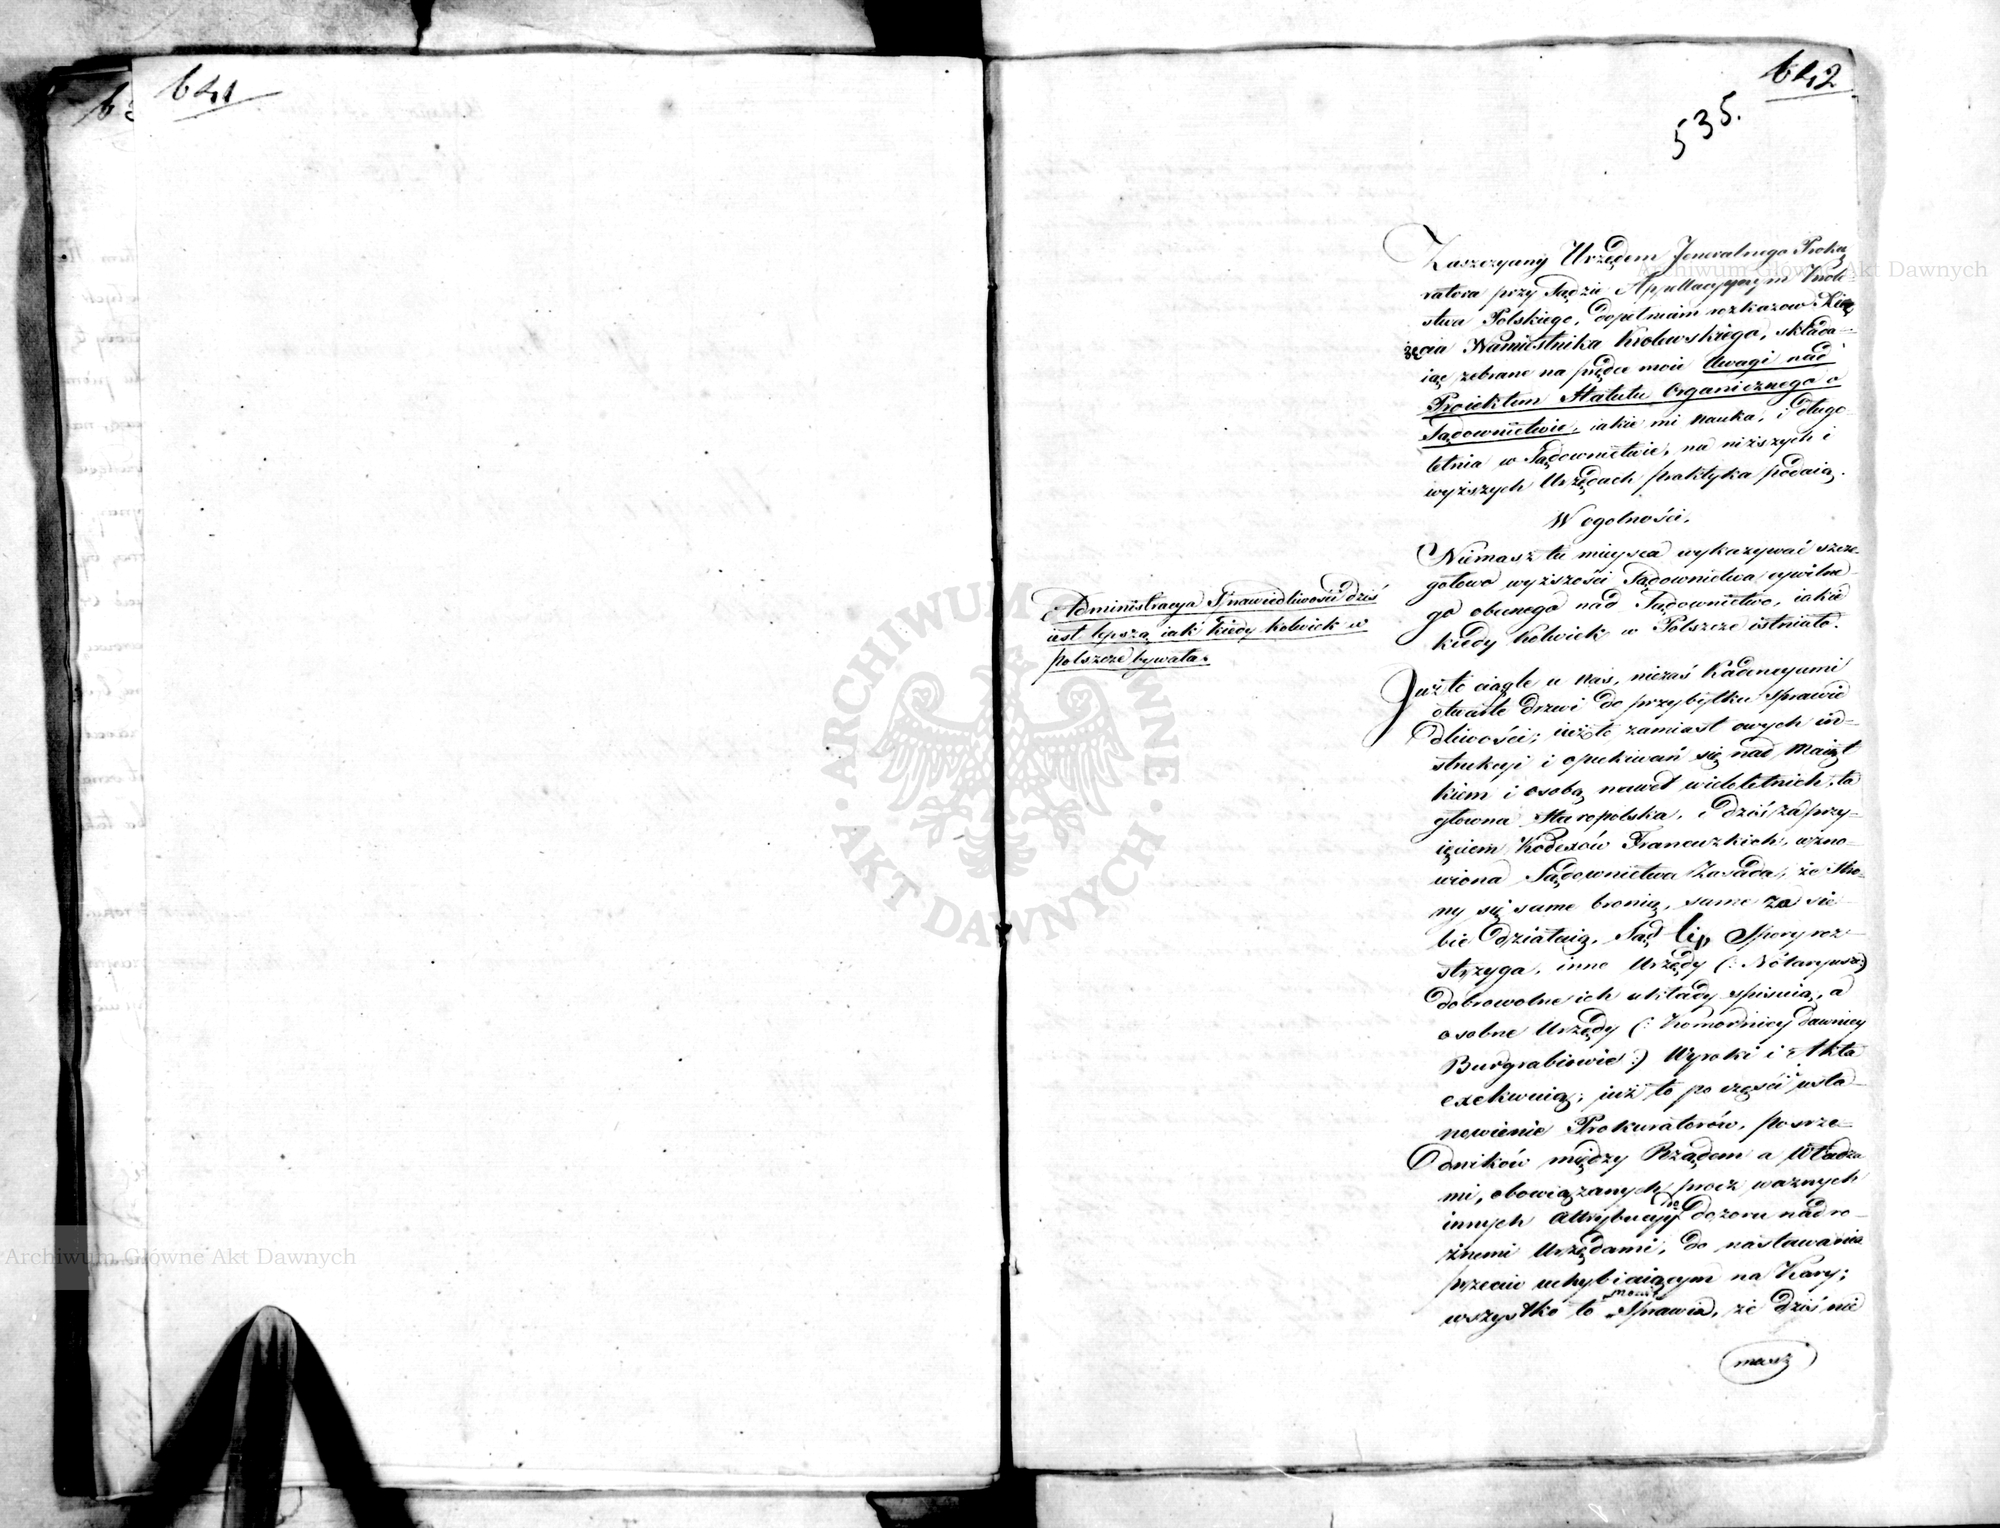 641
642
535.
Zaszczycony Urzędem Jeneralnego Proku
ratora przy Sądzie Apellacyynym Krole-
stwa Polskiego, dopełniam rozkazow Xią
żęcia Namiestnika Krolewskiego, składa-
iąc zebrane na prędce moie Uwagi nad
Proiektem Statutu Organicznego o
Sądownictwie, iakie mi nauka, i długo-
letnia w Sądownictwie, na niższych i
wyższych Urzędach praktyka podaią.
W ogolności.
Niemasz tu mieysca wykazywać szcze-
gołowo wyższości Sądownictwa cywilne-
go obecnego nad Sądownictwo, iakie
kiedy kolwiek w Polszcze istniało.
Administracya Sprawiedliwości dziś
iest lepszą iak kiedy kolwiek w
polszcze bywała.
Już to ciągle u nas, nie zaś Kadencyami
otwarte drzwi do przybytku sprawie
dliwości; iuż to zamiast owych in-
strukcyi i opiekowań się nad Maiąt
kiem i osobą nawet wieloletnich, ta
głowna Staropolska, i dziś za przy-
ięciem Kodexów Francuzkich, wzno-
wiona Sądownictwa Zasada, że Stro-
ny się same bronią, same za sie-
bie działaią, Sąd Spory roz-
strzyga, inne Urzędy (: Notaryusze:)
dobrowolne ich układy spisuią, a
osobne Urzędy (: Komornicy dawniey
Burgrabiowie:) Wyroki i Akta
exekwuią; iuż to po części usta-
nowienie Prokuratorów, pośrze-
dników między Rządem a Władza
mi, obowiązanych procz ważnych
innych Attrybucyy do dozoru nad ro-
żnemi Urzędami, do nastawania
przeciw uchybiaiącym na Kary;
wszystko to mowię Sprawia, że dziś nie
masz
ARCHIWUM GŁÓWNE · AKT DAWNYCH ·
Archiwum Główne Akt Dawnych
Archiwum Główne Akt Dawnych